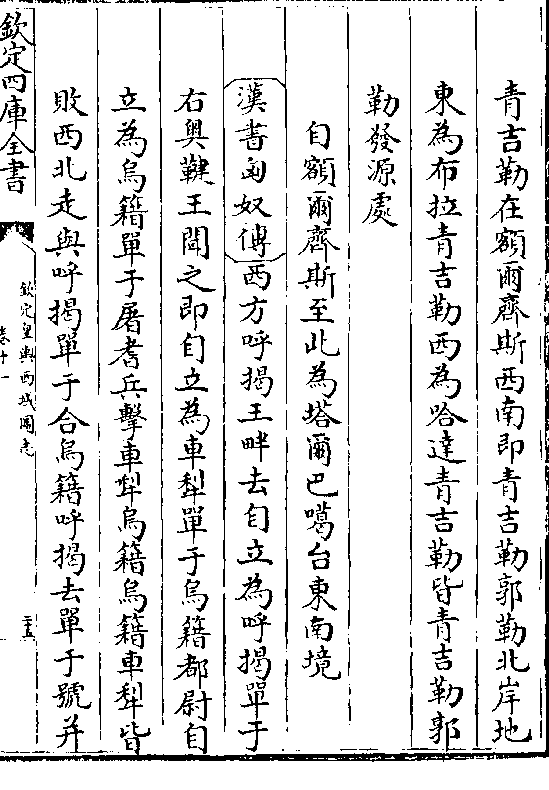 青吉勒在額爾齊斯西南即青吉勒郭勒北岸地
東為布拉青吉勒西為哈達青吉勒皆青吉勒郭
勒發源處
自額爾齊斯至此為塔爾巴噶台東南境
漢書匈奴傳西方呼揭王畔去自立為呼揭單于
右奥鞬王聞之即自立為車犁單于烏籍都尉自
立為烏籍單于屠耆兵擊車犁烏籍烏籍車犁皆
敗西北走與呼揭單于合烏籍呼揭去單于號并
欽定四庫全書
欽定皇輿西域圖志
卷十一
二十五